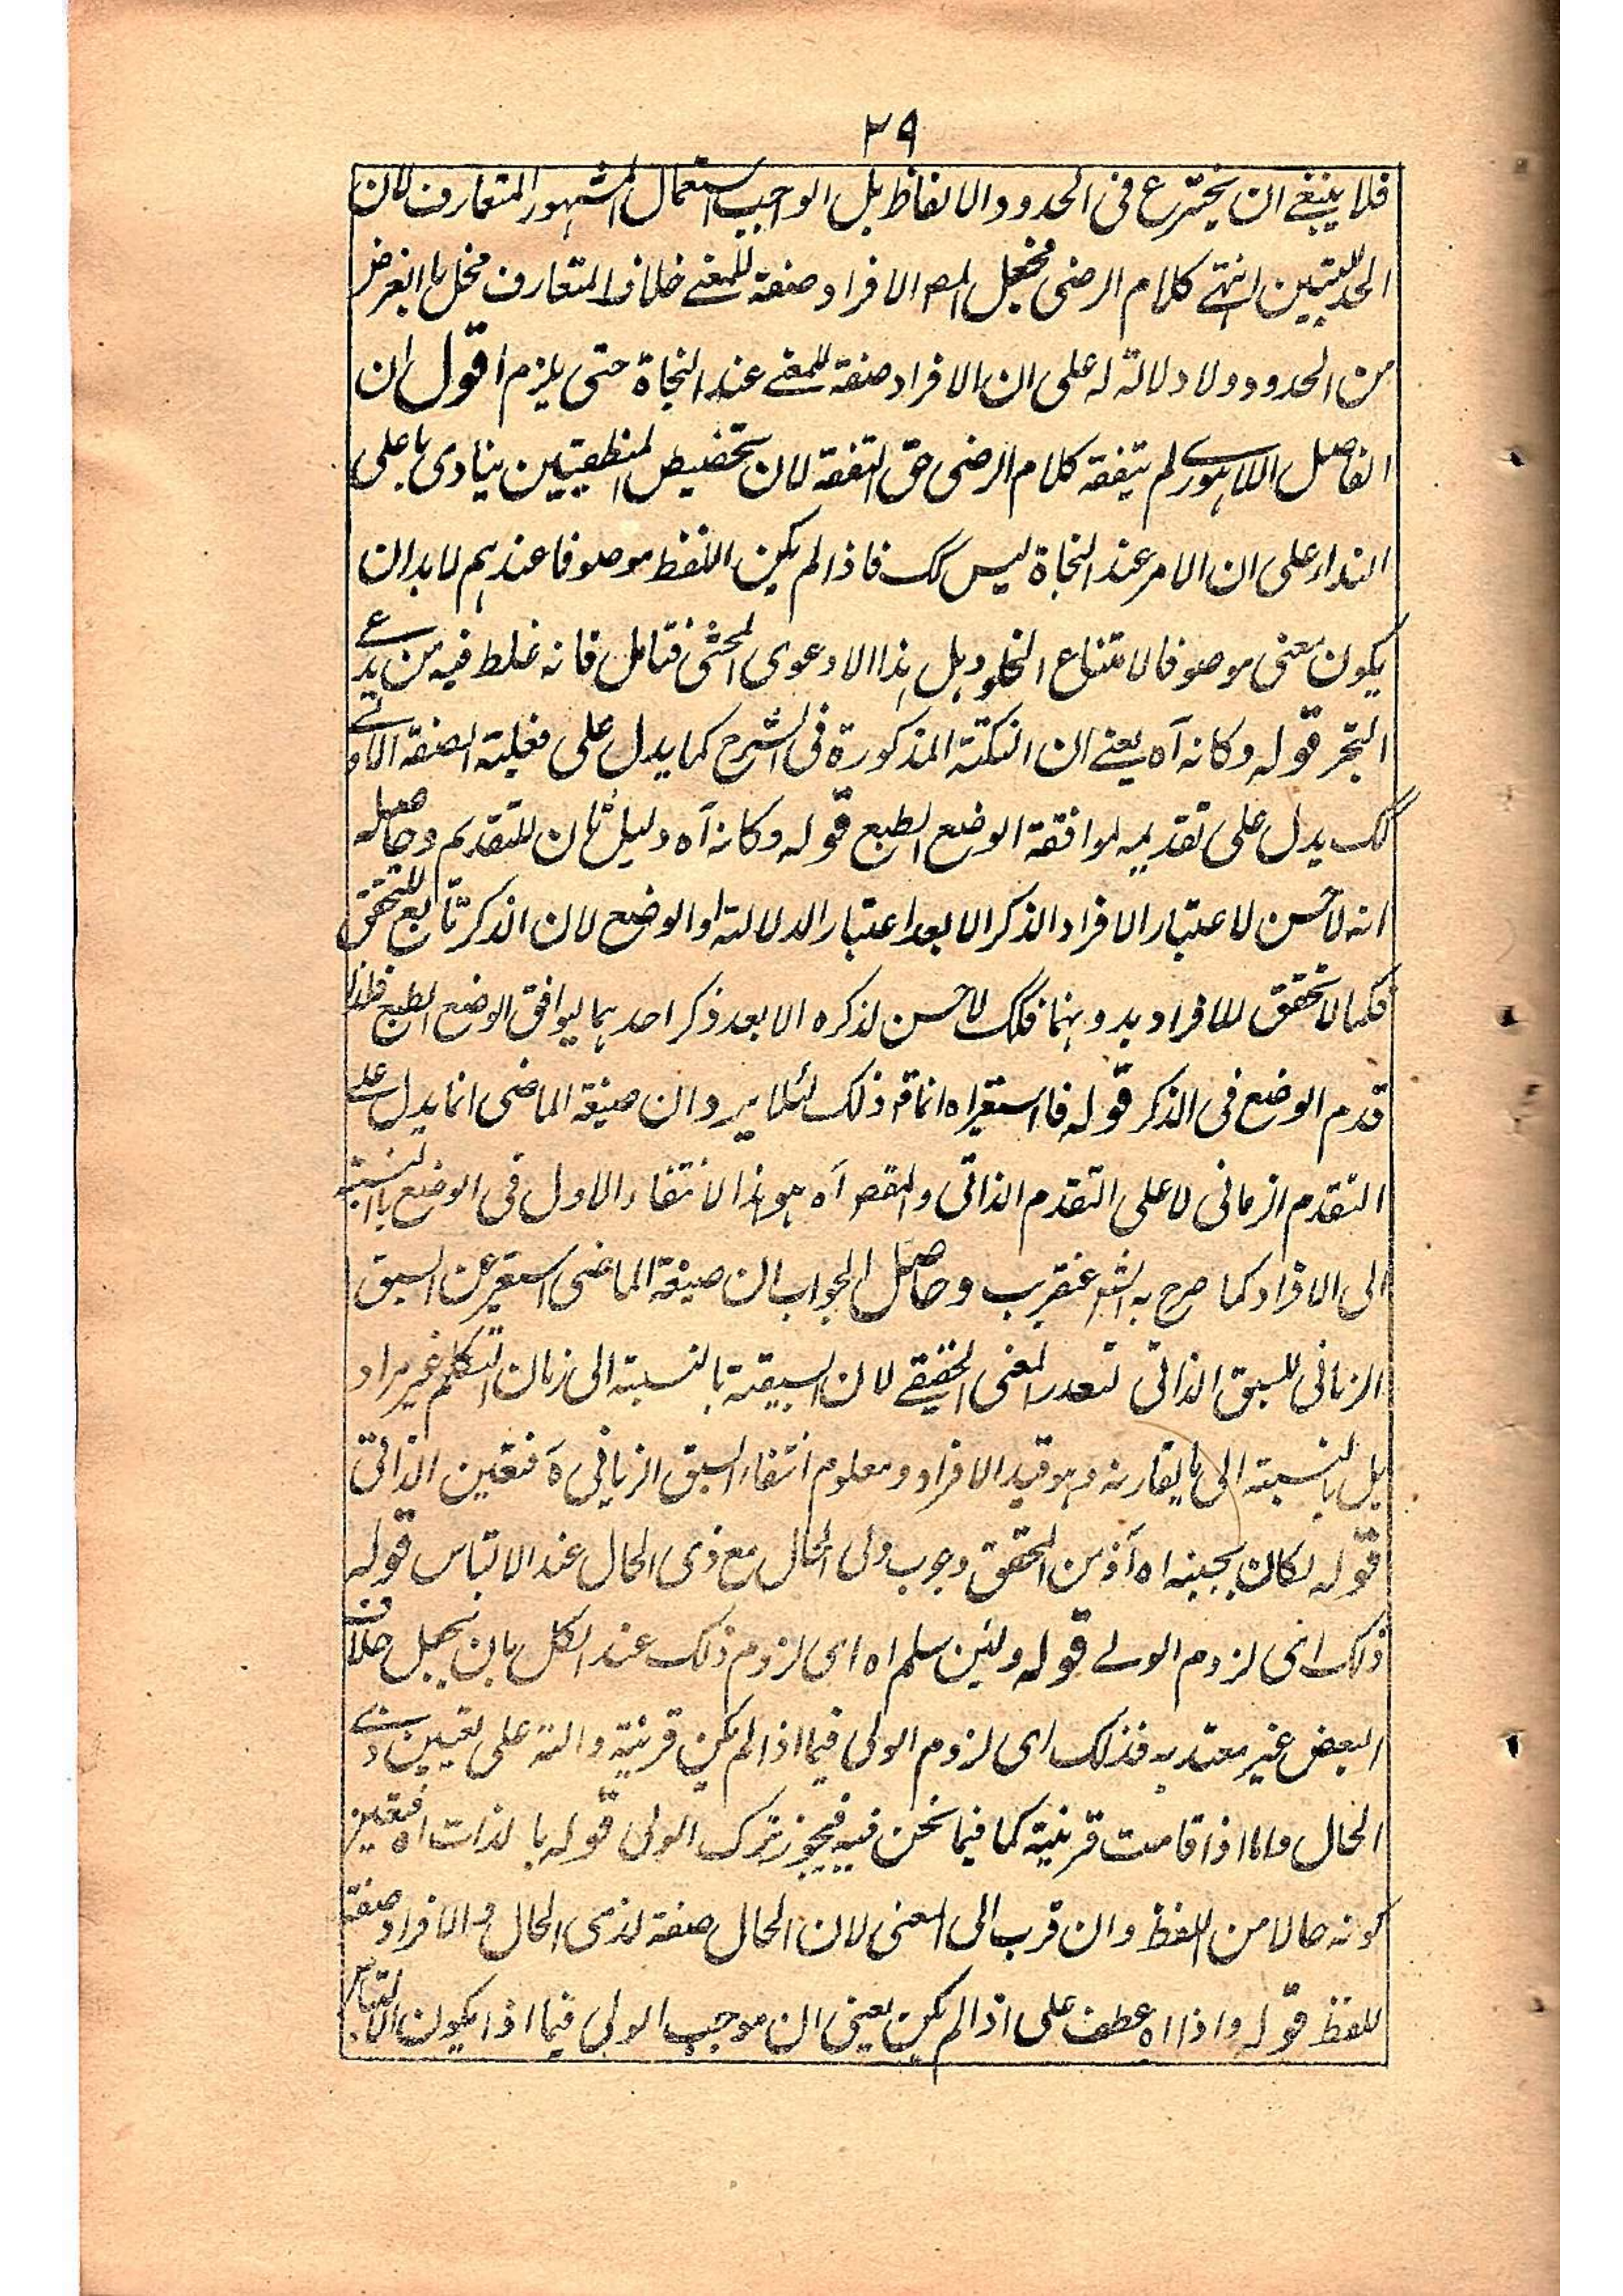 ٢٩
فلا ينبغے ان يخترع فى الحدود الالفاظ بل الواجب استعمال المشهور المتعارف لان
الحد للتبيين انتهے كلام الرضى فجعل المص الافراد صفة للمعنے خلاف المتعارف مخل بالغرض
من الحدود ولا دلالة له على ان الافراد صفة للمعنے عند النحاة حتى يلزم اقول ان
الفاضل اللاهورے لم يتفقه كلام الرضى حق التفقه لان تخصيص المنطقيين ينادى باعلى
النداء على ان الامر عند النحاة ليس كك فاذا لم يكن اللفظ موصوفا عندهم لا بد ان
يكون معنى موصوفا لامتناع الخلو وهل هذا الا دعوى المحشى فتامل فانه غلط فيه من يدعے
التبحر قوله وكانه آه يعنے ان النكتة المذكورة فى الشرح كما يدل على فعلية الصفة الاولے
كك يدل على تقديمه لموافقة الوضع الطبع قوله وكانه آه دليل ثان للتقديم وحاصله
انه لا حسن لاعتبار الافراد الذكر الا بعد اعتبار الدلالة او الوضع لان الذكر تابع للتحقق
فكما لا تحقق للافراد بدونهما فكك لا حسن لذكره الا بعد ذكر احدهما ليوافق الوضع الطبع فلذا
قدم الوضع فى الذكر قوله فاستعير اه انما قم ذلك لئلا يرد ان صيغة الماضى انما يدل علے
التقدم الزمانى لا على التقدم الذاتى والمقص آه هو هذا لانتفاء الاول فى الوضع بالنسبة
الى الافراد كما صرح به الشر عنقريب وحاصل الجواب ان صيغة الماضى استعير عن السبق
الزمانى للسبق الذاتى لتعذر المعنى الحقيقے لان السبقية بالنسبة الى زمان التكلم غير مراد
بل بالنسبة الى ما يقارنه وهو قيد الافراد ومعلوم انتفاء السبق الزمانى ه فتعين الذاتى
قوله لكان بجنبه اه آذ من المحقق وجوب ولى الحال مع ذى الحال عند الالتباس قوله
ذلك اى لزوم الولے قوله ولئن سلم اه اى لزوم ذلك عند الكل بان يجعل خلاف
البعض غير معتد به فذلك اى لزوم الولى فيما اذا لم يكن قرينة دالة على تعيين ذے
الحال واما اذا قامت قرينة كما فيما نحن فيه فيجوز ترك الولى قوله بالذات اه فتعين
كونه حالا من اللفظ وان قرب الى المعنى لان الحال صفة لذى الحال والافراد صفة
للفظ قوله واذا اه عطف على اذا لم يكن يعنى ان موجب الولى فيما اذا يكون الالتباس